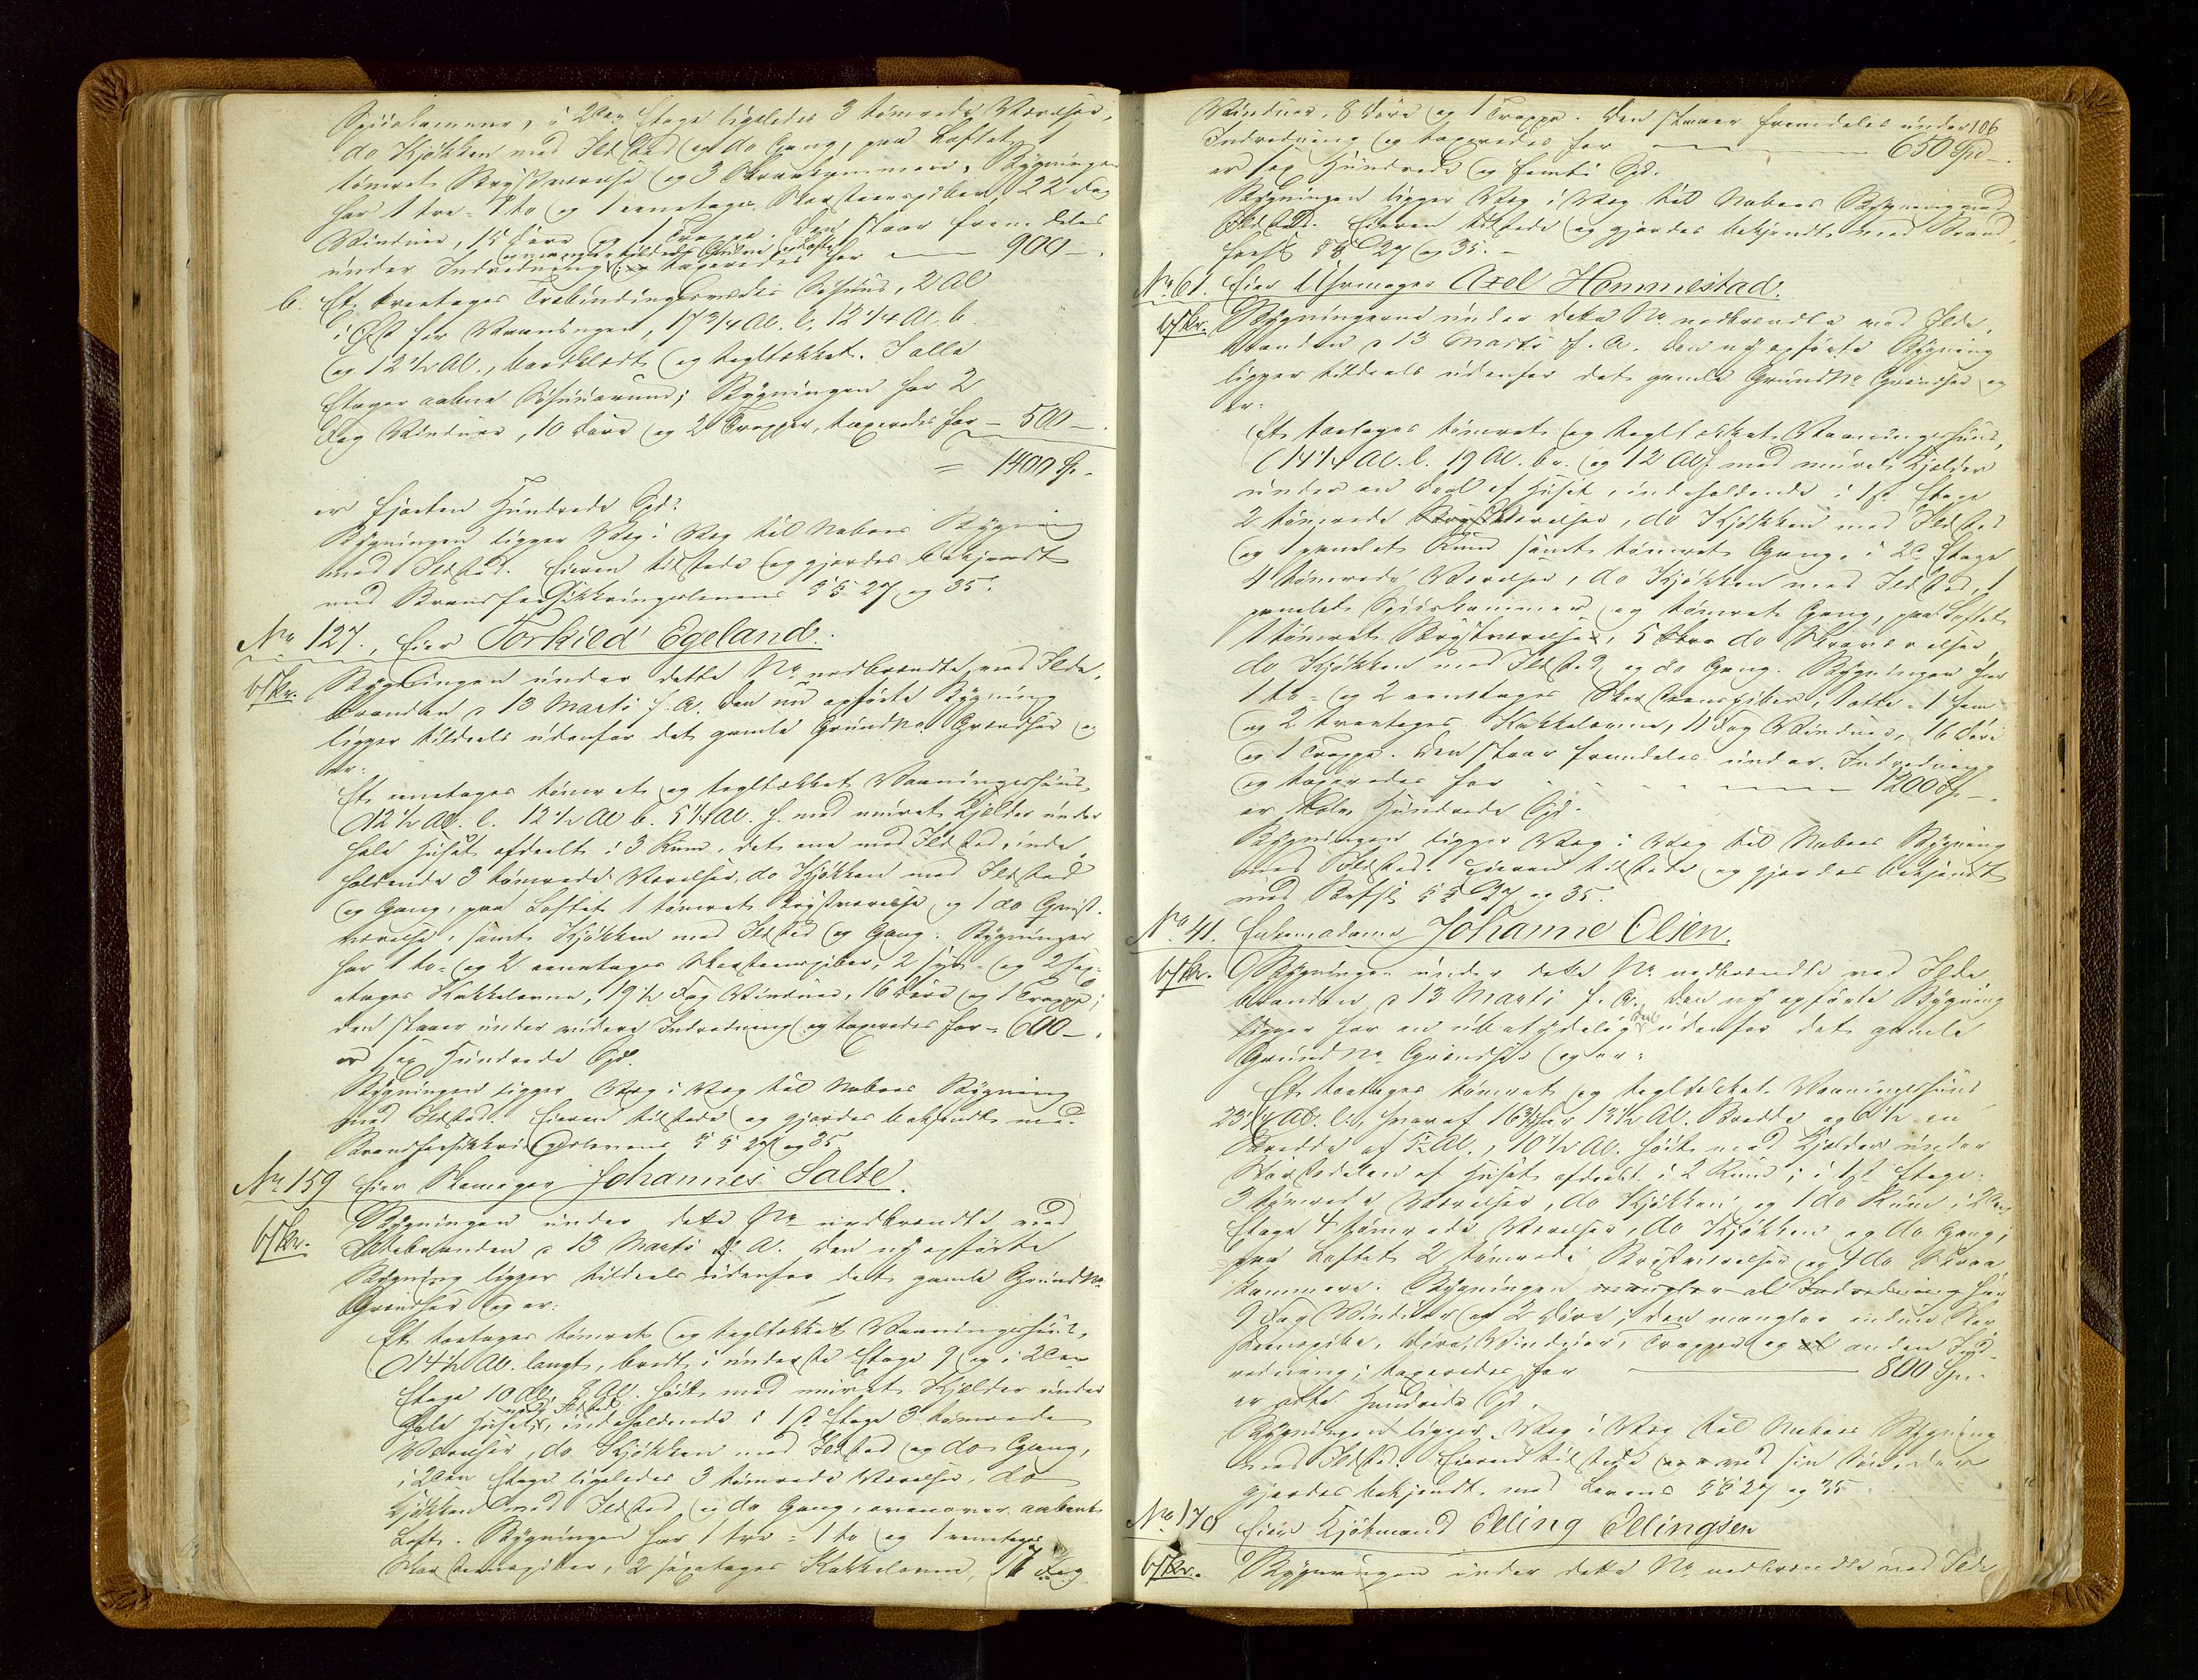 Spiiskammer, i 2den Etage ligeledes 3 tømrede Værelser,
do Kjøkken med Ildsted og do Gang, paa Loftet
tømret Brystværelse og 3 Skraakammere, Bygningen
har 1 tre- 1 to og 1 eenetages Skorsteenspiber, 22 Fag
Vinduer, 15 Døre og 1 Trappe. Den staar fremdeles
under Indredning og taxeredes for — 900 —.
b. Et treetages Træbindingsværks Søhuus, 2 Al
i Øst for Vaaningen, 17 3/4 Al. l. 12 1/4 Al. b.
og 12 1/2 Al., bordklædt og tegltækket. I alle
Etager aabne Søhuusrum; Bygningen har 2
Fag Vinduer, 10 Døre og 2 Trapper, taxeredes for — 500 —.
= 1400 Sp.
er fjorten Hundrede Spd.
Bygningen ligger Væg i Væg til Naboes Bygning
med Ildsted. Eieren tilstede og gjordes bekjendt
med Brandforsikkringslovens §§ 27 og 35.
No 127., Eier Torkild Egeland.
b/kr. Bygningen under dette No nedbrændte ved Ilde-
branden d 13 Marts f. A. Den nu opførte Bygning
ligger tildeels udenfor det gamle Grund No Grændser og
er:
Et eenetages tømret og tegltækket Vaaningshuus,
12 1/2 Al. l. 12 1/2 Al b. 5 1/4 Al. h. med muret Kjælder under
hele Huset afdeelt i 3 Rum, det ene med Ildsted, inde-
holdende 3 tømrede Værelser, do Kjøkken med Ildsted
og Gang, paa Loftet 1 tømret Brystværelse og 1 do Qvist-
værelse, samt Kjøkken med Ildsted og Gang. Bygningen
har 1 to- og 2 eenetages Skorsteenspiber, 2 syv- og 2 sex-
etages Kakkelovne, 19 1/2 Fag Vinduer, 16 Døre og 1 Trappe;
den staaer under videre Indredning og taxeredes for = 600 —.
er sex Hundrede Spd.
Bygningen ligger Væg i Væg til Naboes Bygning
med Ildsted. Eieren tilstede og gjordes bekjendt med
Brandforsikkringslovens §§ 27 og 35
No 159 Eier Skomager Johannes Salte.
b/kr. Bygningen under dette No nedbrændte ved
Ildebranden d 13 Marts f. A. Den ny opførte
Bygning ligger tildeels udenfor det gamle Grund No
Grændser og er:
Et toetages tømret og tegltækket Vaaningshuus,
14 1/2 Al. langt, bredt i underste Etage 9 og i 2den
Etage 10 Al., 8 Al. høit med muret Kjælder under
hele Huset med Ildsted, indeholdende i 1ste Etage 3 tømrede
Værelser, do Kjøkken med Ildsted og do Gang,
i 2den Etage ligeledes 3 tømrede Værelser, do
Kjøkken med Ildsted og do Gang, ovenover aabent
Loft. Bygningen har 1 tre- 1 to og 1 eenetages
Skorsteenspiber, 2 sexetages Kakkelovne, 17 Fag
106
Vinduer, 8 Døre og 1 Trappe. Den staaer fremdeles under
Indredning og taxeredes for — 650 Spd —.
er sex Hundrede og femti Spd.
Bygningen ligger Væg i Væg til Naboes Bygning med
Ildsted. Eieren tilstede og gjordes bekjendt med Brand-
fors §§ 27 og 35. —
No 61. Eier Uhrmager Axel Hommestad.
b/kr. Bygningerne under dette No nedbrændte ved Ilde-
branden d 13 Marts f. A. Den ny opførte Bygning
ligger tildeels udenfor det gamle Grund No Grændser og
er:
Et toetages tømret og tegltækket Vaaningshuus,
14 1/4 Al. l. 19 Al. br. og 12 Al h med muret Kjælder
under en Deel af Huset, indeholdende i 1ste Etage
2 tømrede Værelser, do Kjøkken med Ildsted
og 1 panelet Rum samt tømret Gang, i 2d Etage
4 tømrede Værelser, do Kjøkken med Ildsted, 1
panelet Spiiskammer og tømret Gang, paa Loftet
1 tømret Brystværelse, 5 do Skraaværelser,
do Kjøkken med Ildsted og do Gang. Bygningen har
1 to- og 2 eenetages Skorsteenspiber, 1 otte- 1 fem-
og 2 treetages Kakkelovne, 11 Fag Vinduer, 16 Døre
og 1 Trappe. Den staar fremdeles under Indredning
og taxeredes for — 1200 Sp —.
er Tolv Hundrede Spd.
Bygningen ligger Væg i Væg til Naboes Bygning
med Ildsted. Eieren tilstede og gjordes bekjendt
med Brfs §§ 27 og 35.
No 41. Enkemadame Johanne Olsen.
b/kr. Bygningen under dette No nedbrændte ved Ilde-
branden d 13 Marts f. A., den ny opførte Bygning
ligger for en ubetydelig Deel udenfor det gamle
Grund No Grændser og er:
Et toetages tømret og tegltækket Vaaningshuus
23 1/4 Al. l., hvoraf 16 3/4 har 13 1/2 Al. Bredde og 6 1/2 en
Bredde af 5 Al., 10 1/2 Al. høit med Kjælder under
Størstedelen af Huset afdeelt i 2 Rum; i 1ste Etage:
3 tømrede Værelser, do Kjøkken og 1 do Rum i 2den
Etage 4 tømrede Værelser, do Kjøkken og do Gang;
paa Loftet 2 tømrede Brystværelser og 4 do Skraa-
kammere. Bygningen mangler al Indredning har
9 Fag Vinduer og 2 Døre; den mangler endnu Skor-
steenspibe, Døre, Vinduer, Trapper og al anden Ind-
redning; taxeredes for — 800 Spd.
er otte Hundrede Spd.
Bygningen ligger Væg i Væg til Naboes Bygning
med Ildsted. Eieren tilstede ved sin Søn, der
gjordes bekjendt med Lovens §§ 27 og 35
No 170 Eier Kjøbmand Elling Ellingsen
b/kr. Bygningen under dette No nedbrændte ved Ilde